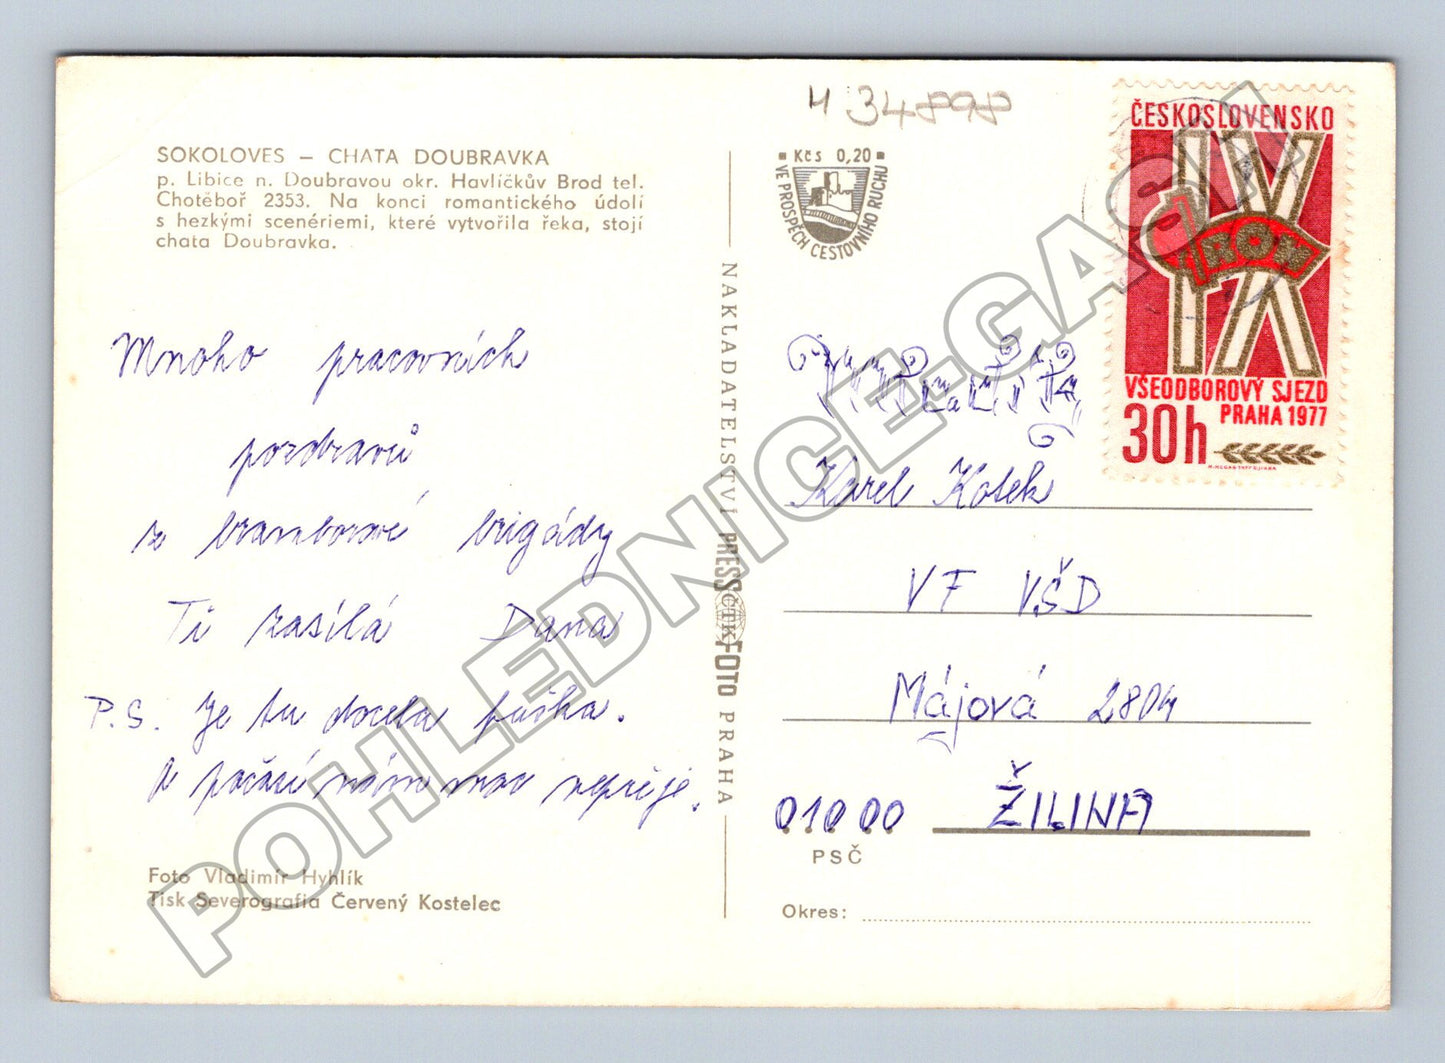 SOKOLOVES – CHATA DOUBRAVKA
p. Libice n. Doubravou okr. Havlíčkův Brod tel.
Chotěboř 2353. Na konci romantického údolí
s hezkými scenériemi, které vytvořila řeka, stojí
chata Doubravka.
Mnoho pracovních
pozdravů
z bramborové brigády
Ti zasílá Dana
P.S. Je tu docela fuška.
A počasí nám moc nepřeje.
Foto Vladimír Hyhlík
Tisk Severografia Červený Kostelec
NAKLADATELSTVÍ PRESSFOTO PRAHA
ČTK
4 34898
Kčs 0,20
VE PROSPĚCH CESTOVNÍHO RUCHU
ČESKOSLOVENSKO
IX
ROH
IX
VŠEODBOROVÝ SJEZD
PRAHA 1977
30h
Karel Kotek
VF VŠD
Májová 2804
01000 ŽILINA
PSČ
Okres:
POHLEDNICE-GASH